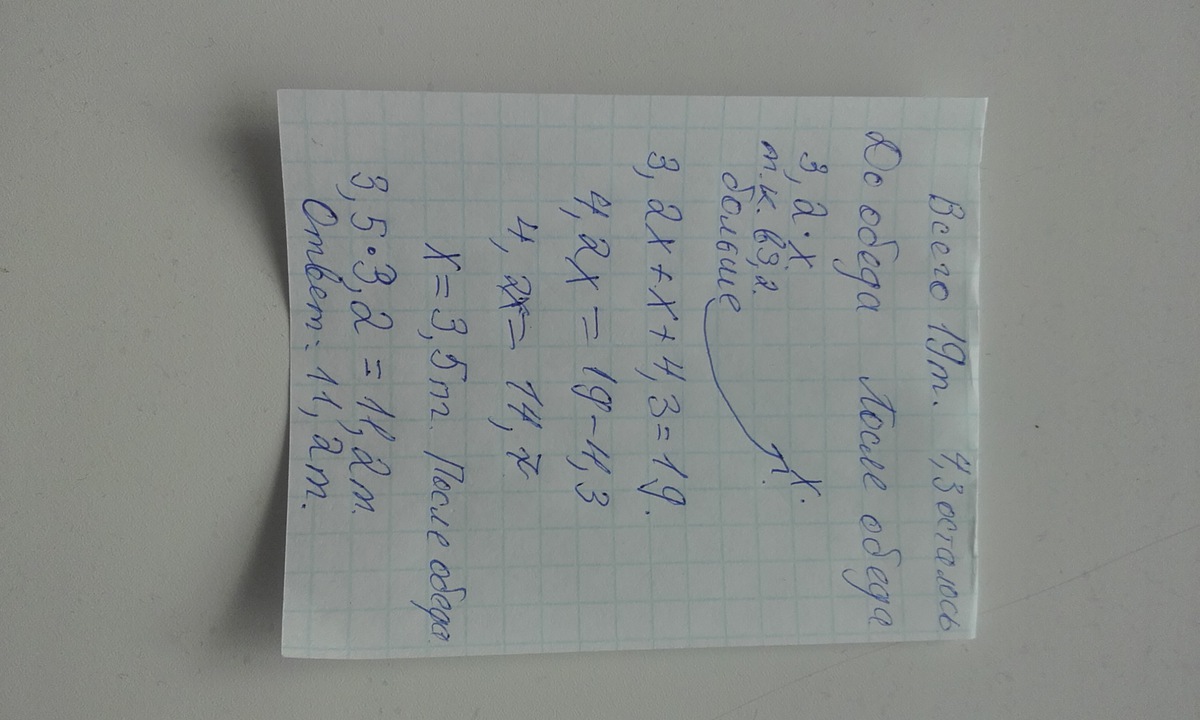 Всего 19т. 4,3 осталось
До обеда После обеда
3,2·х х.
т.к. в 3,2.
больше
3,2х+х+4,3=19.
4,2х=19-4,3
4,2х=14,7
х=3,5т. После обеда
3,5·3,2=11,2т.
Ответ: 11,2т.